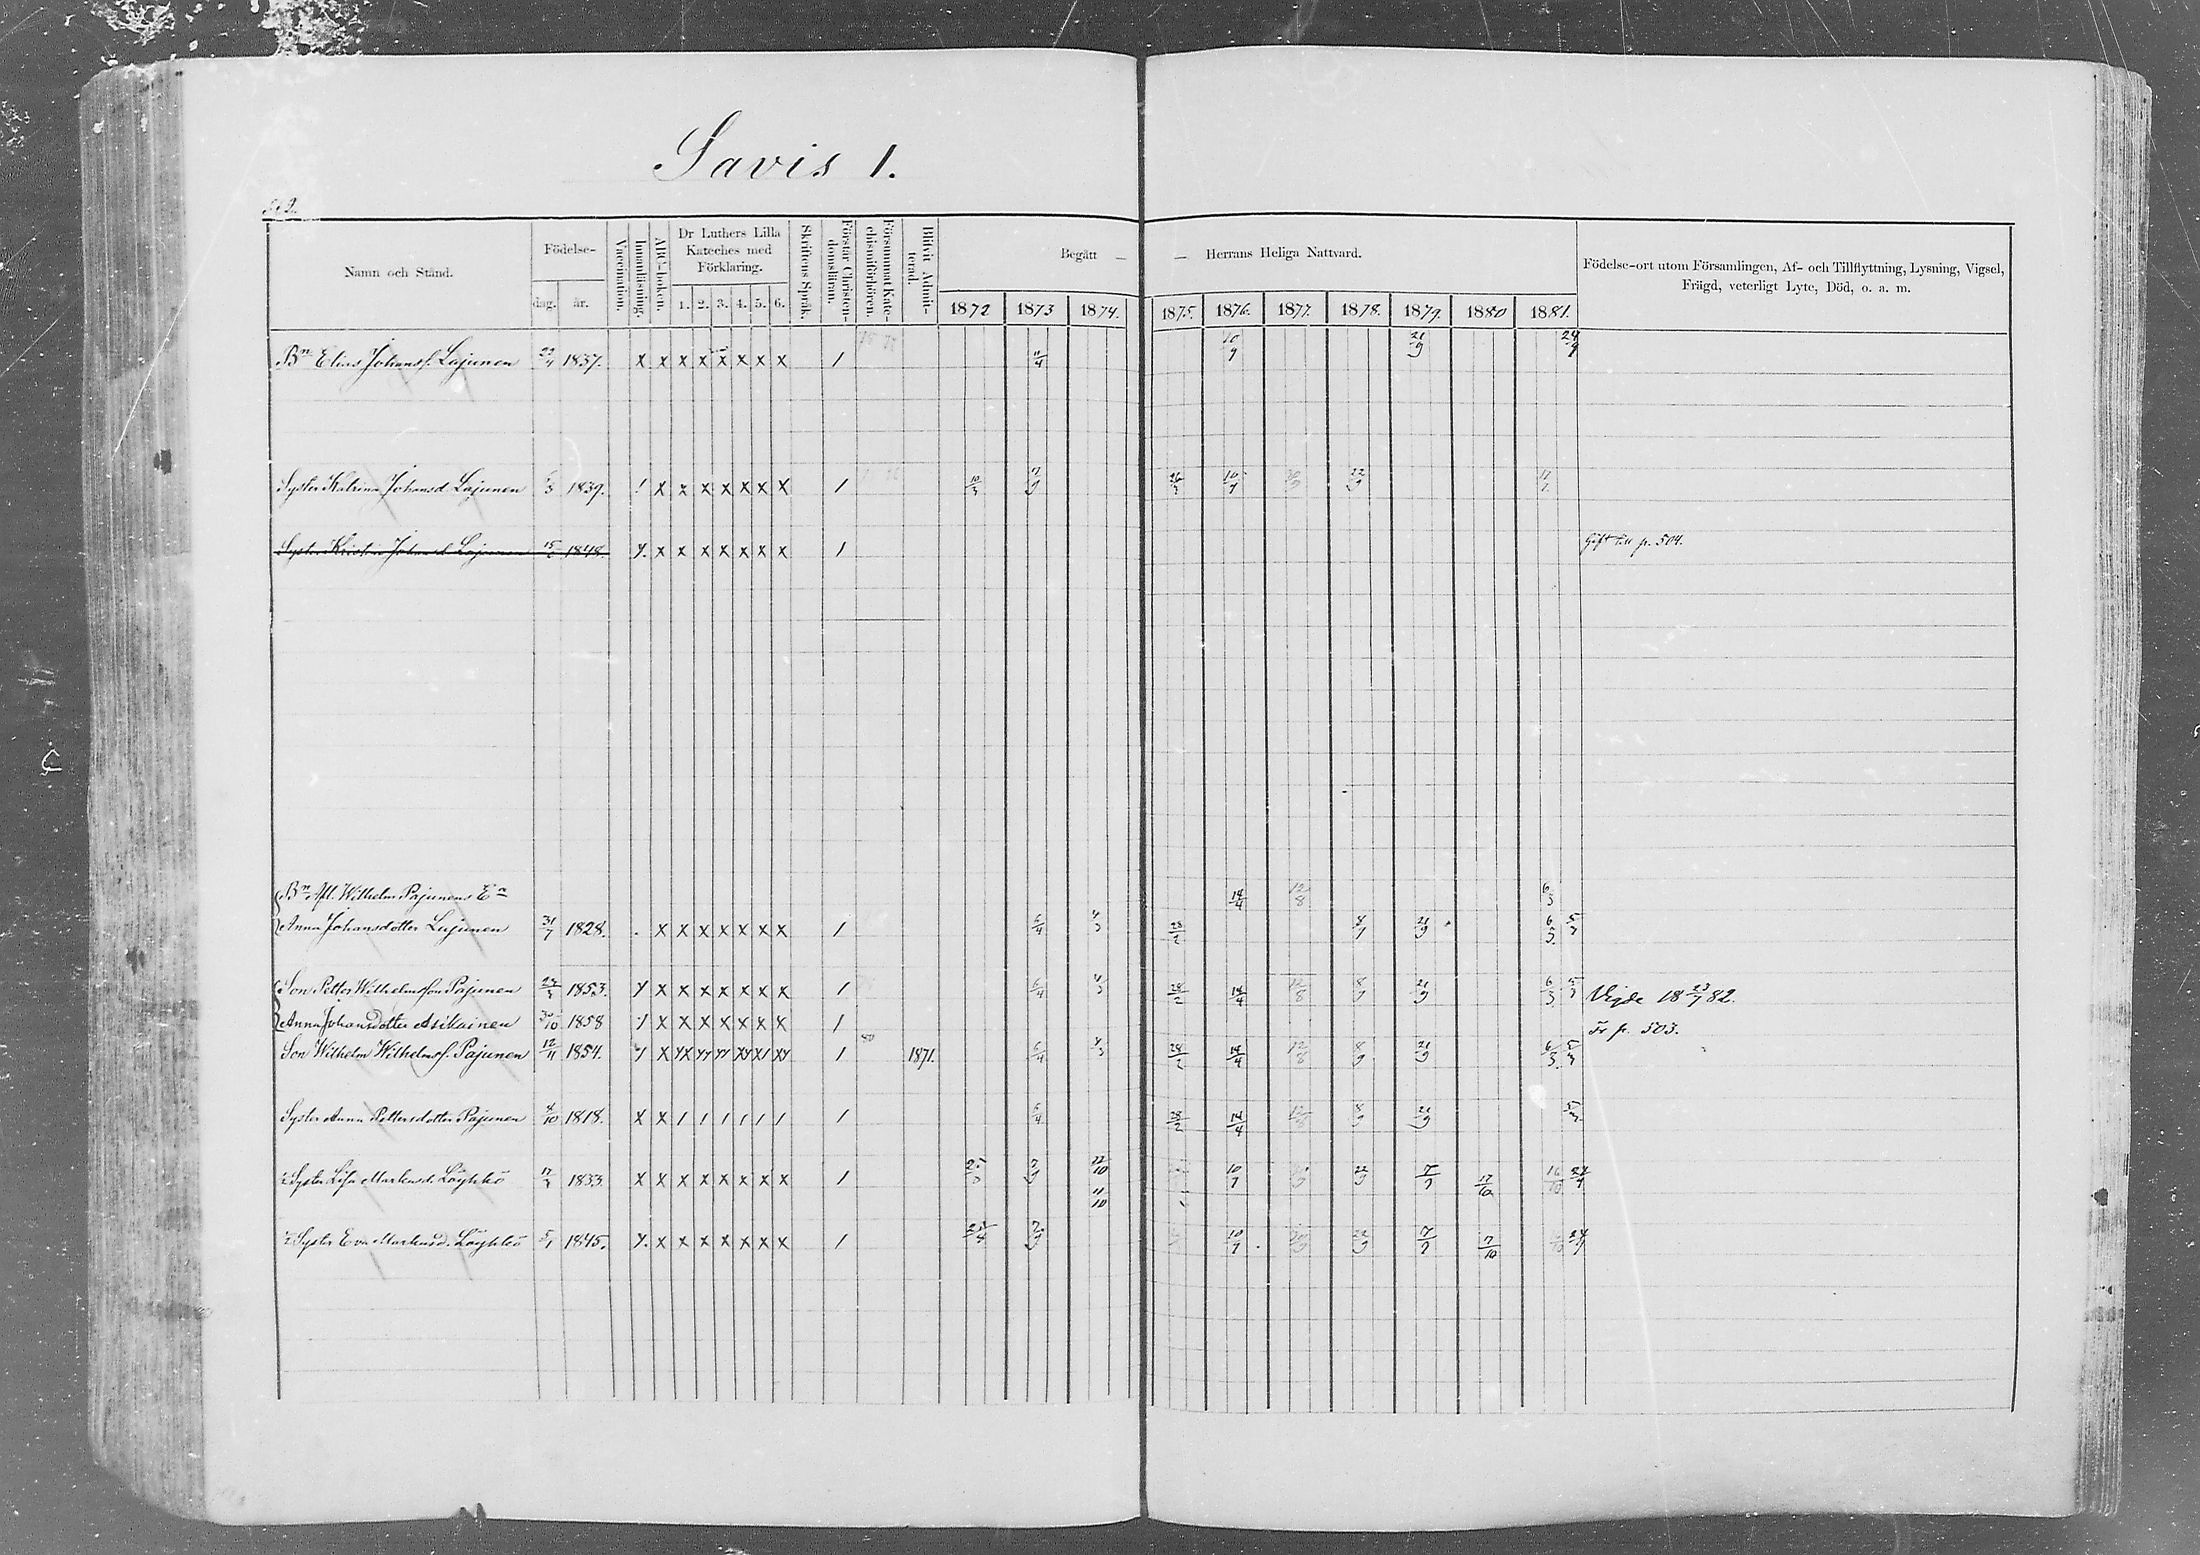 Savis 1.
Namn och Stånd.
Födelse-
dag. år.
Vaccination.
Innanläsning.
ABC-boken.
Dr Luthers Lilla
Kateches med
Förklaring.
1. 2. 3. 4. 5. 6.
Skriftens Språk.
Förstår Christen-
domsläran.
Försummat Kate-
chismiförhören.
Blifvit Admit-
terad.
Begått —
— Herrans Heliga Nattvard.
1872 1873 1874. 1875. 1876. 1877. 1878. 1879. 1880 1881.
Födelse-ort utom Församlingen, Af- och Tillflyttning, Lysning, Vigsel,
Frägd, veterligt Lyte, Död, o. a. m.
Bn Elias Johansf. Lajunen 1837. x x x x x x x x 1 11/4 10/9 21/9 24/9
Syster Katrina Johansd Lajunen 1839. x x x x x x x 1 10/3 7/9 10/9 22/9
Syster Kristin Johansd Lajunen 15 1848. x x x x x x x 1 Gift till p. 504.
Bn Afl. Wilhelm Pajunens En 14/4 12/8 6/3
Anna Johansdotter Lajunen 31/7 1828. x x x x x x x 1 6/4 4/3 28/2 8/9 21/9 6/3. 5/3
Son Petter Wilhelmsson Pajunen 1853. y x x x x x x x 1 6/4 4/3 28/2 14/4 12/8 8/9 21/9 6/3 5/3 Vigde 18 23/7 82.
Anna Johansdotter Asikainen 30/10 1858 y x x x x x x x 1 Fr p. 503.
Son Wilhelm Wilhelmsf. Pajunen 12/11 1854. y x yx yy yy xy xy 1 80 1871. 6/4 4/3 28/2 14/4 12/8 8/9 21/9 6/3. 5/3
Syster Anna Pettersdotter Pajunen 4/10 1818. x x 1 1 1 1 1 1 1 6/4 28/2 14/4 12/8 8/9 21/9 5/3
Syster Lisa Markusd. Löyhkö 1833 x x x x x x x x 1 7/9 22/10 10/9 22/9 7/9 17/10 16/10 24/9
11/10
Syster Eva Markusd. Löyhkö 1845. y. x x x x x x x 1 7/9 10/9 22/9 7/9 7/10 24/9